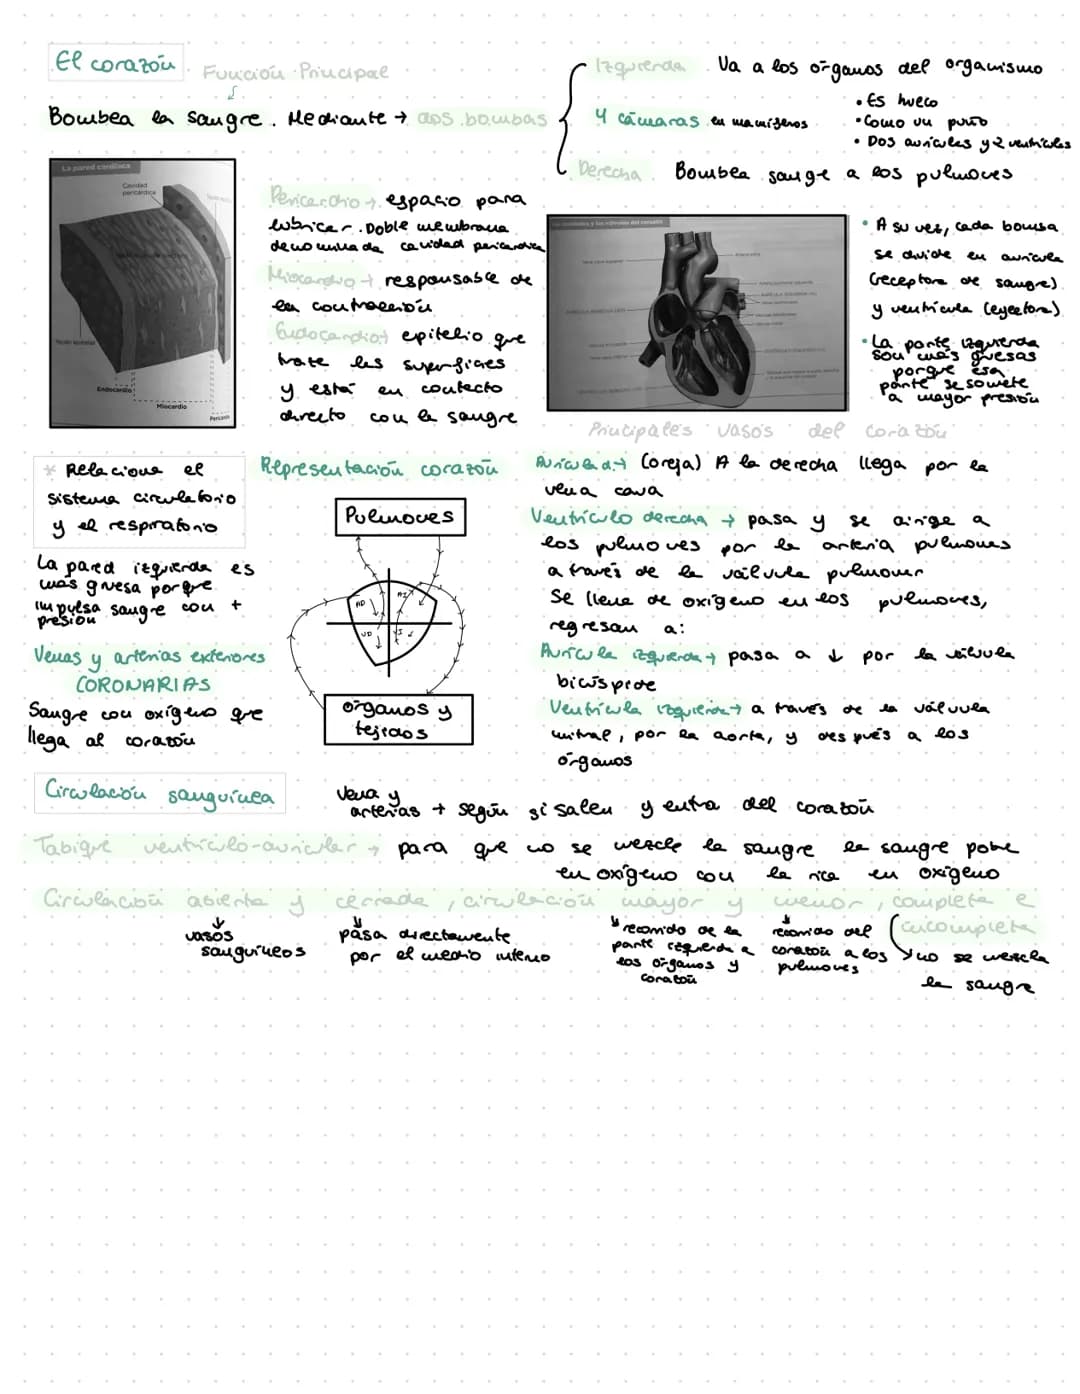 El corazón
Función Principal
Bombea la sangre. Mediante → dos bombas
Izquierda. Va a los órganos del organismo
4 cámaras en mamíferos
• Es hueco
• Como un puño
• Dos aurículas y 2 ventrículos
Derecha. Bombea sange a los pulmones
La pared cardíaca
Cavidad
pericárdica
Endocardio
Miocardio
Pericardio → espacio para
lubricar. Doble membrana
denominada cavidad pericardica
Miocardio → responsable de
la contracción
Endocardio → epitelio que
trate las superficies
y está en contacto
directo con la sangre
• A su vez, cada bomba
se divide en aurícula
(receptora de sangre)
y ventrícula (eyectora)
• La parte izquierda
son más gruesas
porque esa
parte se somete
a mayor presión
Principales vasos del corazón
* Relaciona el
sistema circulatorio
y el respiratorio
La pared izquierda es
mas gruesa porque
impulsa sangre con +
presión
Venas y arterias exteriores
CORONARIAS
Sangre con oxígeno que
llega al corazón
Representación corazón
Pulmones
AD
AI
VD
VI
órganos y
tejidos
Aurícula d: → (oreja) A la derecha llega por la
vena cava
Ventrículo derecha → pasa y se dirige a
los pulmones por la arteria pulmones
a través de la válvula pulmonar
Se llena de oxígeno en los pulmones,
regresan a:
Aurícula izquierda → pasa a ↓ por la válvula
bicúspide
Ventrícula izquierda → a través de la válvula
mitral, por la aorta, y después a los
órganos
Circulación sanguínea
Vena y
arterias → según si salen y entra del corazón
Tabique ventrículo-auricular → para que no se mezcle la sangre la sangre pobre
en oxígeno con la rica en oxígeno
Circulación abierta y cerrada, circulación mayor y menor, completa e
incompleta
vasos
sanguíneos
pasa directamente
por el medio interno
recorrido de la
parte izquierda a
los órganos y
corazón
recorrido del
corazón a los
pulmones
no se mezcla
la sangre